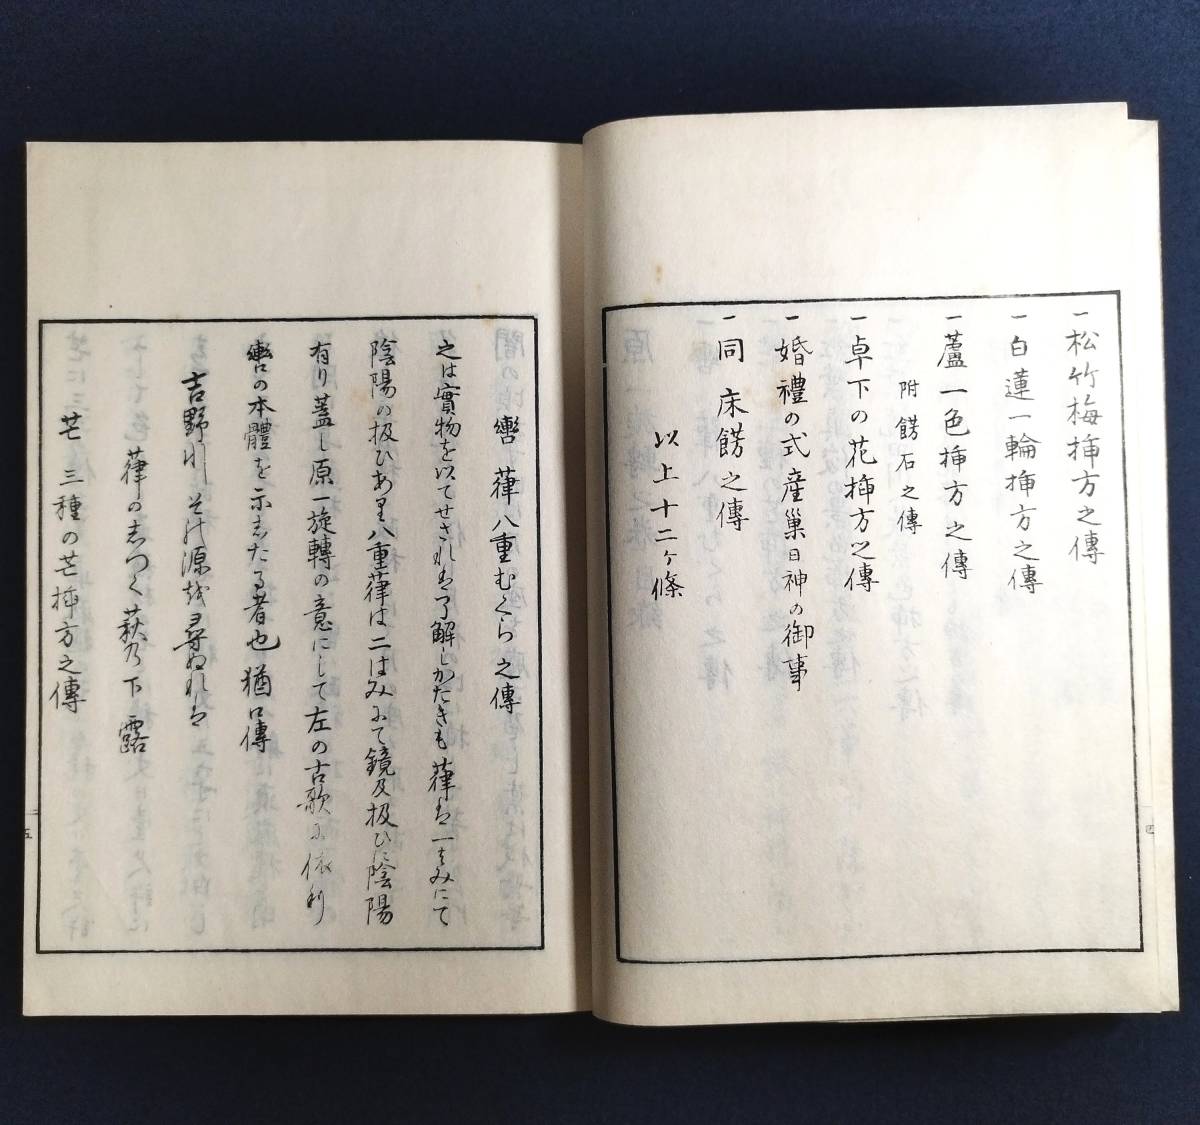 一松竹梅挿方之傳
一白蓮一輪挿方之傳
一蘆一色挿方之傳
附餝石之傳
一卓下の花挿方之傳
一婚禮の式産巢日神の御事
一同床餝之傳
以上十二ヶ條
四
轡葎八重むくら之傳
之は實物を以てせされは了解しかたきも葎は一はみにて
陰陽の扱ひあり八重葎は二はみにて鏡及扱ひに陰陽
有り蓋し原一旋轉の意にして左の古歌に依り
轡の本體を示志たる者也猶口傳
吉野川その源を尋ぬれは
葎の志つく萩乃下露
芒三種の芒挿方之傳
五